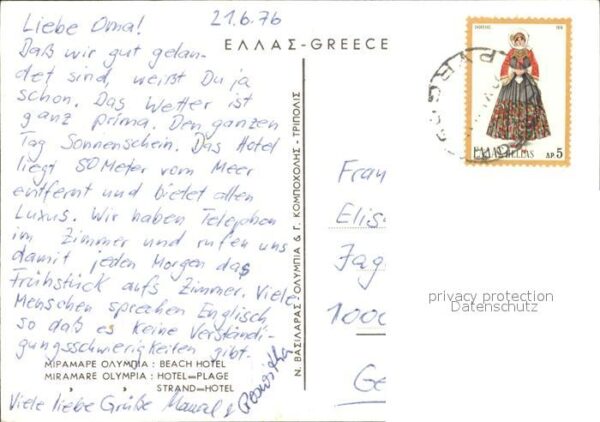 Liebe Oma!
21.6.76
Daß wir gut gelan-
det sind, weißt Du ja
schon. Das Wetter ist
ganz prima. Den ganzen
Tag Sonnenschein. Das Hotel
liegt 50 Meter vom Meer
entfernt und bietet allen
Luxus. Wir haben Telephon
im Zimmer und rufen uns
damit jeden Morgen das
Frühstück aufs Zimmer. Viele
Menschen sprechen Englisch
so daß es keine Verständi-
gungsschwierigkeiten gibt.
ΜΙΡΑΜΑΡΕ ΟΛΥΜΠΙΑ : BEACH HOTEL
MIRAMARE OLYMPIA : HOTEL=PLAGE
» » STRAND=HOTEL
Viele liebe Grüße
Ν. ΒΑΣΙΛΑΡΑΣ - ΟΛΥΜΠΙΑ & Γ. ΚΟΜΠΟΧΟΛΗΣ - ΤΡΙΠΟΛΙΣ
ΕΛΛΑΣ-GREECE
HELLAS ΔΡ. 5
Fran
Elis
Jag
1000
Ge
privacy protection
Datenschutz